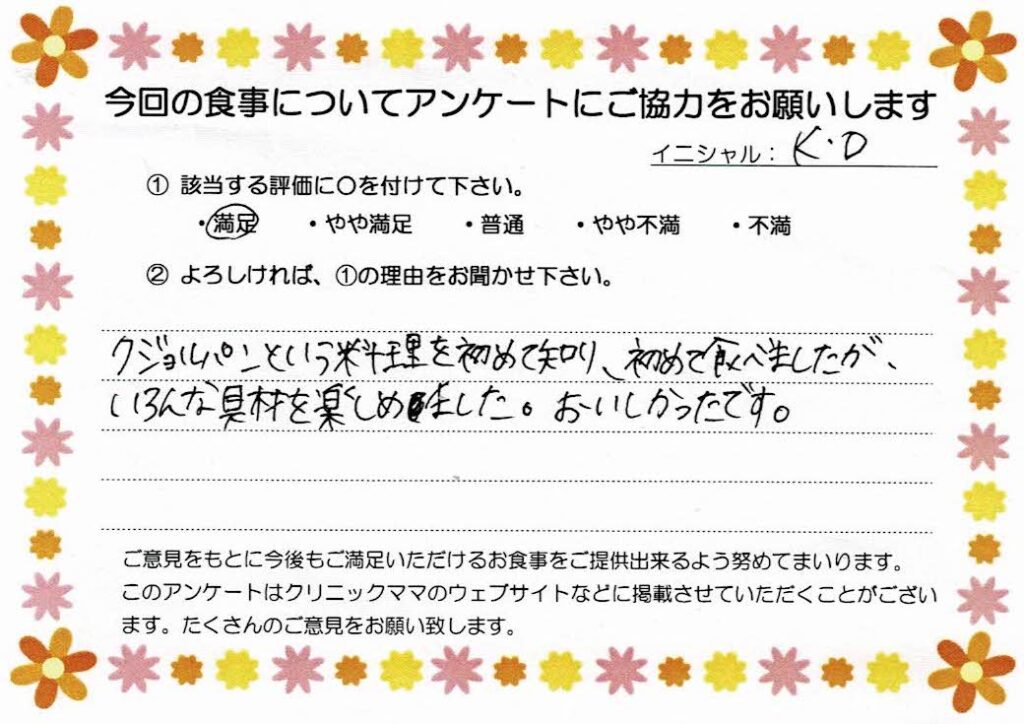 今回の食事についてアンケートにご協力をお願いします
イニシャル： K・D
① 該当する評価に〇を付けて下さい。
・満足 ・やや満足 ・普通 ・やや不満 ・不満
② よろしければ、①の理由をお聞かせ下さい。
クジョルパンという料理を初めて知り、初めて食べましたが、
いろんな具材を楽しめました。おいしかったです。
ご意見をもとに今後もご満足いただけるお食事をご提供出来るよう努めてまいります。
このアンケートはクリニックママのウェブサイトなどに掲載させていただくことがござい
ます。たくさんのご意見をお願い致します。